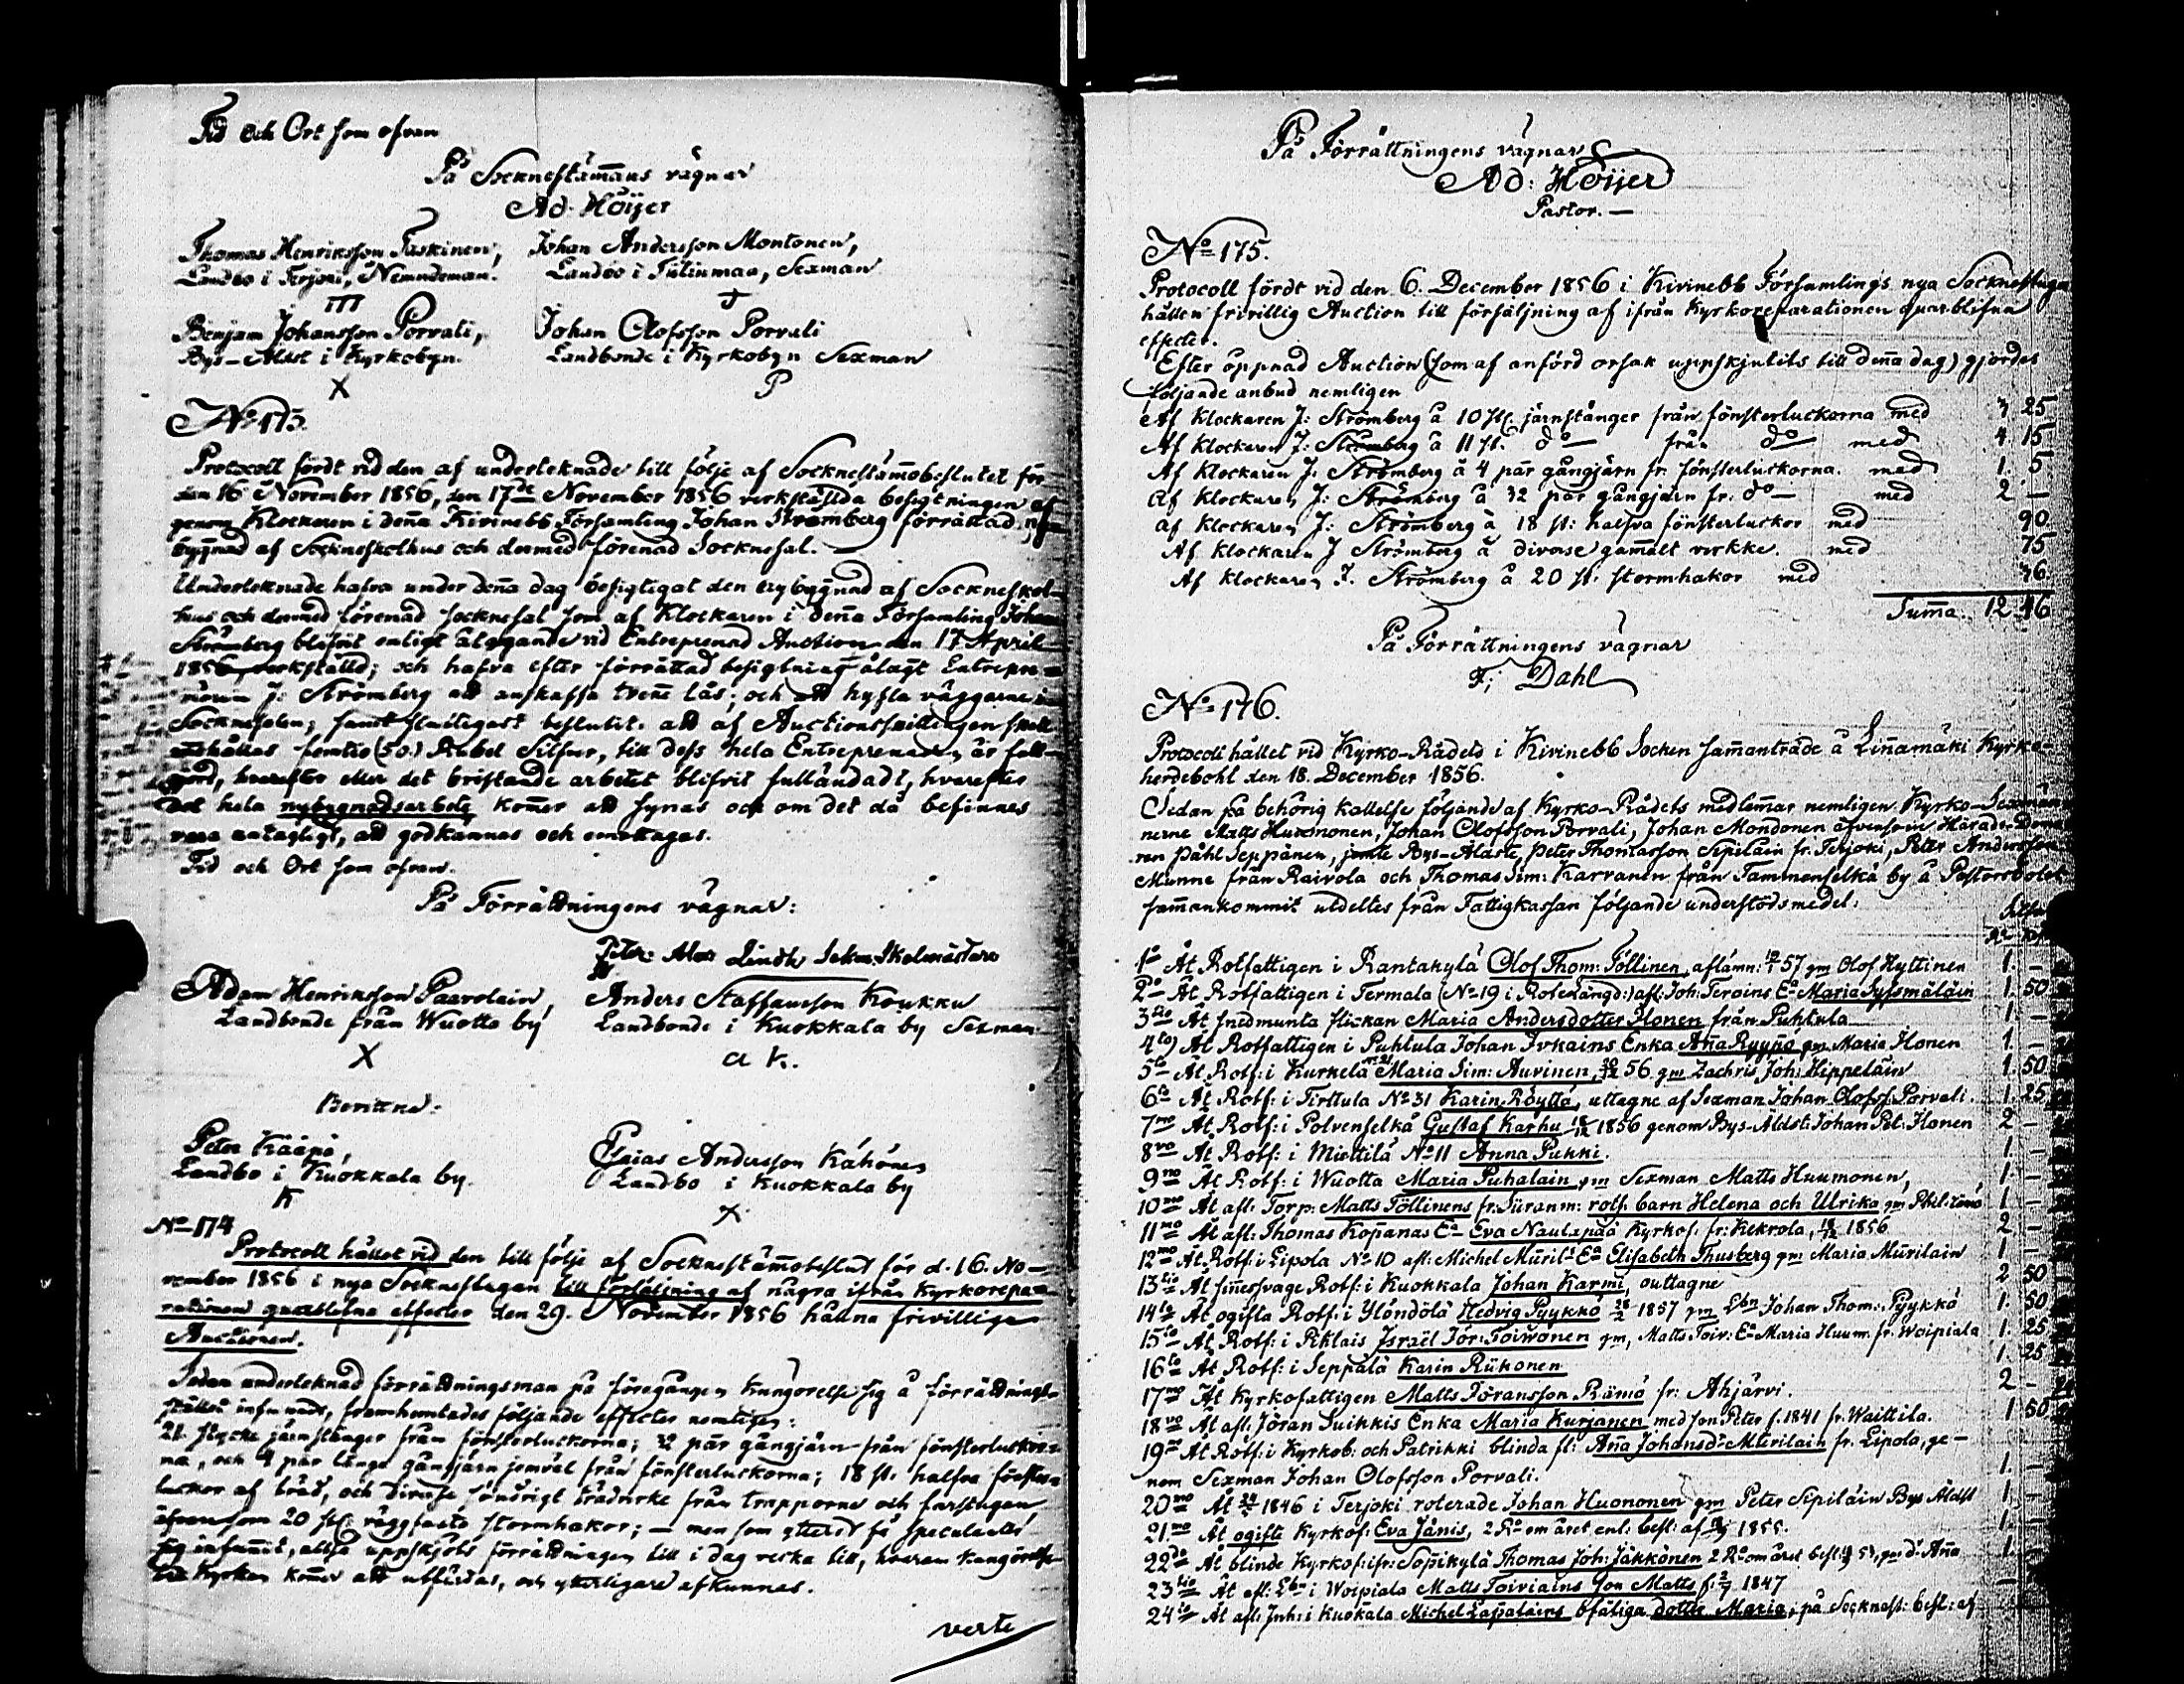 Tid och Ort som ofvan
På Socknestämmans vägnar
Ad. Höijer
Thomas Henriksson Taskinen,
Landbo i Terjoki, Nemndeman.
Johan Andersson Montonen,
Landbo i Tulinmaa, Sexman
Benjam Johansson Porvali,
Bys-Äldst i Kyrkobyn.
X
Johan Olofsson Porvali
Landbonde i Kyrkobyn Sexman
P
No 173.
Protocoll fördt vid den af underteknade till följe af Socknestämobeslutet för
den 16 November 1856, den 17de November 1856 verkstälda besigtningen af
genom Klockaren i denna Kivinebb Församling Johan Strömberg förrättad ny
byggnad af Sockneskolhus och dermed förenad Socknesal.
Underteknade hafva under denna dag besigtigat den nybyggnad af Sockneskol-
hus och dermed förenad socknesal som af Klockaren i denna Församling Johan
Strömberg blifvit enligt åtagande vid Entreprenad Auction den 17 April
1856 verkställd; och hafva efter förrättad besigtning ålagt Entrepre-
nören J: Strömberg att anskaffa tvene lås; och att hyfla väggarne i
Socknesalen; samt slutligast beslutit att af Auctionsskillingen skall
innehållas femtio (50) Rubel Silfver, till dess hela Entreprenaden är full-
gjord, hvarefter eller det bristande arbetet blifvit fulländadt, hvarefter
det hela nybygnadsarbete komer att synas och om det då befinnes
vara antagligt, att godkännas och emottagas.
Tid och Ort som ofvan.
På Förrättningens vägnar:
Peter Alex Lindh Sokne Skolmästare
Adam Henriksson Paavolain,
Landbonde från Wuotta by
X
Anders Staffansson Koukku
Landbonde i Kuokkala by Sexman
a k.
Bevittna:
Peter Kääpä,
Landbo i Kuokkala by.
K
Esaias Andersson Kähönen
Landbo i Kuokkala by
X
No 174
Protocoll hållet vid den till följe af Socknestämobeslut för d. 16. No-
vember 1856 i nya Socknestugan till försäljning af några ifrån Kyrkorepa-
rationen quarblefna effecter den 29. November 1856 hållna frivilliga
Auctionen.
Sedan underteknad förrättningsman på föregången kungörelse sig å förrättnings-
stället infunnit, framhemtades följande effecter nemligen:
21 stycke järnstänger från fönsterluckorna; 32 par gångjärn från fönsterluckor-
na, och 4 par långe gångjärn jemväl från fönsterluckorna; 18 st. halfva fönster-
luckor af bräd, och diverse söndrigt trädvirke från trapporne och farstugan
äfvensom 20 st. väggfasta stormhakor; — men som ytterst få speculanter
sig infunnit, altså uppskjöts förrättningen till i dag vecka till, hvarom kungörelse
i Kyrkan komer att utfärdas, och ytterligare afkunnas.
verte
På Förrättningens vägnar
Ad: Höijer
Pastor. —
No 175.
Protocoll fördt vid den 6. December 1856 i Kivinebb Församlings nya Socknestuga
hållen frivillig Auction till försäljning af ifrån Kyrkoreparationen quarblifna
effecter.
Efter öppnad Auction (som af anförd orsak uppskjutits till denna dag) gjordes
följande anbud nemligen
Af Klockaren J: Strömberg å 10 st. järnstänger från fönsterluckorna med 3 25
Af Klockaren J: Strömberg å 11 st. do— från do— med 4 15
Af Klockaren J: Strömberg å 4 par gångjärn fr. fönsterluckorna. med 1. 5
Af Klockaren J: Strömberg å 32 par gångjärn fr. do— med 2 —
af Klockaren J: Strömberg å 18 st: halfva fönsterluckor med 90
Af Klockaren J Strömberg å diverse gammalt verkke. med 75
Af Klockaren J. Strömberg å 20 st. stormhakor med 36
Summa. 12 46
På Förrättningens vägnar
F: Dahl
No 176.
Protocoll hållet vid Kyrko-Rådets i Kivinebb Socken sammanträde å Linnamäki Kyrko-
herdebohl den 18. December 1856.
Sedan på behörig kallelse följande af Kyrko-Rådets medlemmar nemligen Kyrko-Sexmän-
nerne Matts Huumonen, Johan Olofsson Porvali, Johan Mondonen äfvensom Härads-
Påhl Seppänen, jemte Bys-Äldste, Peter Thomasson Sipiläin fr. Terjoki, Peter Andersson
Munne från Raivola och Thomas Sim: Karvanen från Tammenselkä by å Pastorsbolet
sammankommit utdeltes från Fattigkassan följande understödsmedel.
1o Åt Rotfattigen i Rantakylä Olof Thom: Töllinen, aflämn: 57 gm Olof Hyttinen 1. —
2o Åt Rotfattigen i Termala (No 19 i Rotelängd:) afl: Joh: Teroins Ea Maria Sysmäläin 1. 50
3tio Åt sinedmunta flickan Maria Andersdotter Ilonen från Puhtula 1 —
4to) Åt Rotfattigen i Puhtula Johan Ivkains Enka Anna Ryypö gm Maria Ilonen 1. —
5to Åt Rotf: i Kurkela No 21 Maria Sim: Auvinen, 56 gm Zachris Joh: Hippeläin 1. 50
6to Åt Rotf: i Tirttula No 31 Karin Röyttä, uttagne af Sexman Johan Olofss. Porvali. 1. 25
7mo Åt Rotf: i Polvenselkä Gustaf Karhu 1856 genom Bys-Äldst: Johan Pet. Ilonen 2 —
8vo Åt Rotf: i Miettilä No 11 Anna Pukki. 1 —
9no Åt Rotf: i Wuotta Maria Puhalain, gm Sexman Matts Huumonen, 1. —
10mo Åt afl: Torp: Matts Töllinens fr. Jiiranm: rotf. barn Helena och Ulrika gm 1 —
11mo Åt afl: Thomas Kopanas Ea Eva Naulapää Kyrkof: fr: Kekrola, 1856 2 —
12mo Åt Rotf: i Lipola No 10 afl: Michel Muril: Ea Elisabeth Thusberg gm: Maria Murilain 1 —
13tio Åt sinnessvage Rotf: i Kuokkala Johan Karmi, outtagne 2 50
14to Åt ogifta Rotf: i Ylöndölä Hedvig Pyykkö 1857 gm Johan Thom: Pyykkö 1. 50
15to Åt Rotf: i Piklais Israël Jör: Toiwonen gm, Matts Toiv: Ea Maria Huum. fr. Woipiala 1. 25
16to Åt Rotf: i Seppälä Karin Riikonen 1. 25
17mo Åt Kyrkofattigen Matts Jöransson Rämö fr: Ahjärvi. 2 —
18vo Åt afl: Jöran Suikkis Enka Maria Kurjanen med son Peter f. 1841 fr. Waittila. 1 50
19no Åt Rotf: i Kyrkob: och Patrikki blinda fl: Anna Johansdr Murilain fr. Lipola, ge-
nom Sexman Johan Olofsson Porvali. 1. —
20mo Åt 1846 i Terjoki roterade Johan Huononen gm Peter Sipiläin Bys Äldst 1 —
21mo Åt ogifte Kyrkof: Eva Jänis, 2 Ro om året enl: besl: af 1855. 1 —
22do Åt blinde Kyrkof: ifr: Soppikylä Thomas Joh: Jäkkönen 2 Ro om året besl: 53, gm dr Anna 1 —
23tio Åt afl: i Woipiala Matts Toiviains Son Matts f: 1847
24to Åt afl: Inh: i Kuokala Michel Lapalains ofäliga dotter Maria, på Socknest: besl: af